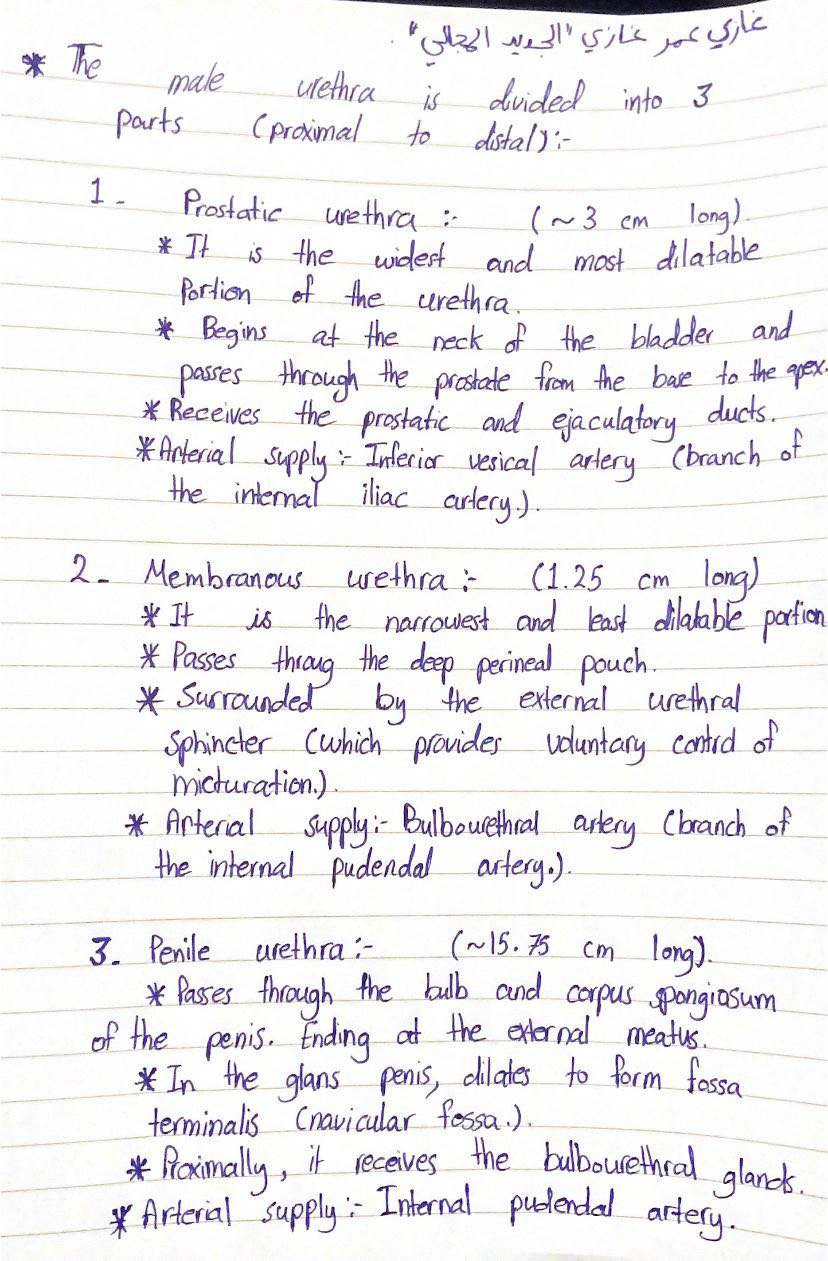 غازي عمر غازي "الجديد المجالي".
* The male urethra is divided into 3
parts (proximal to distal):-
1- Prostatic urethra :- (~3 cm long).
* It is the widest and most dilatable
Portion of the urethra.
* Begins at the neck of the bladder and
passes through the prostate from the base to the apex.
* Receives the prostatic and ejaculatory ducts.
* Arterial supply :- Inferior vesical artery (branch of
the internal iliac artery.).
2- Membranous urethra :- (1.25 cm long)
* It is the narrowest and least dilatable portion
* Passes throug the deep perineal pouch.
* Surrounded by the external urethral
Sphincter (which provides voluntary control of
micturation.).
* Arterial supply:- Bulbourethral artery (branch of
the internal pudendal artery.).
3. Penile urethra :- (~15.75 cm long).
* Passes through the bulb and corpus spongiosum
of the penis. Ending at the external meatus.
* In the glans penis, dilates to form fossa
terminalis (navicular fossa.).
* Proximally, it receives the bulbourethral glands.
* Arterial supply :- Internal pudendal artery.